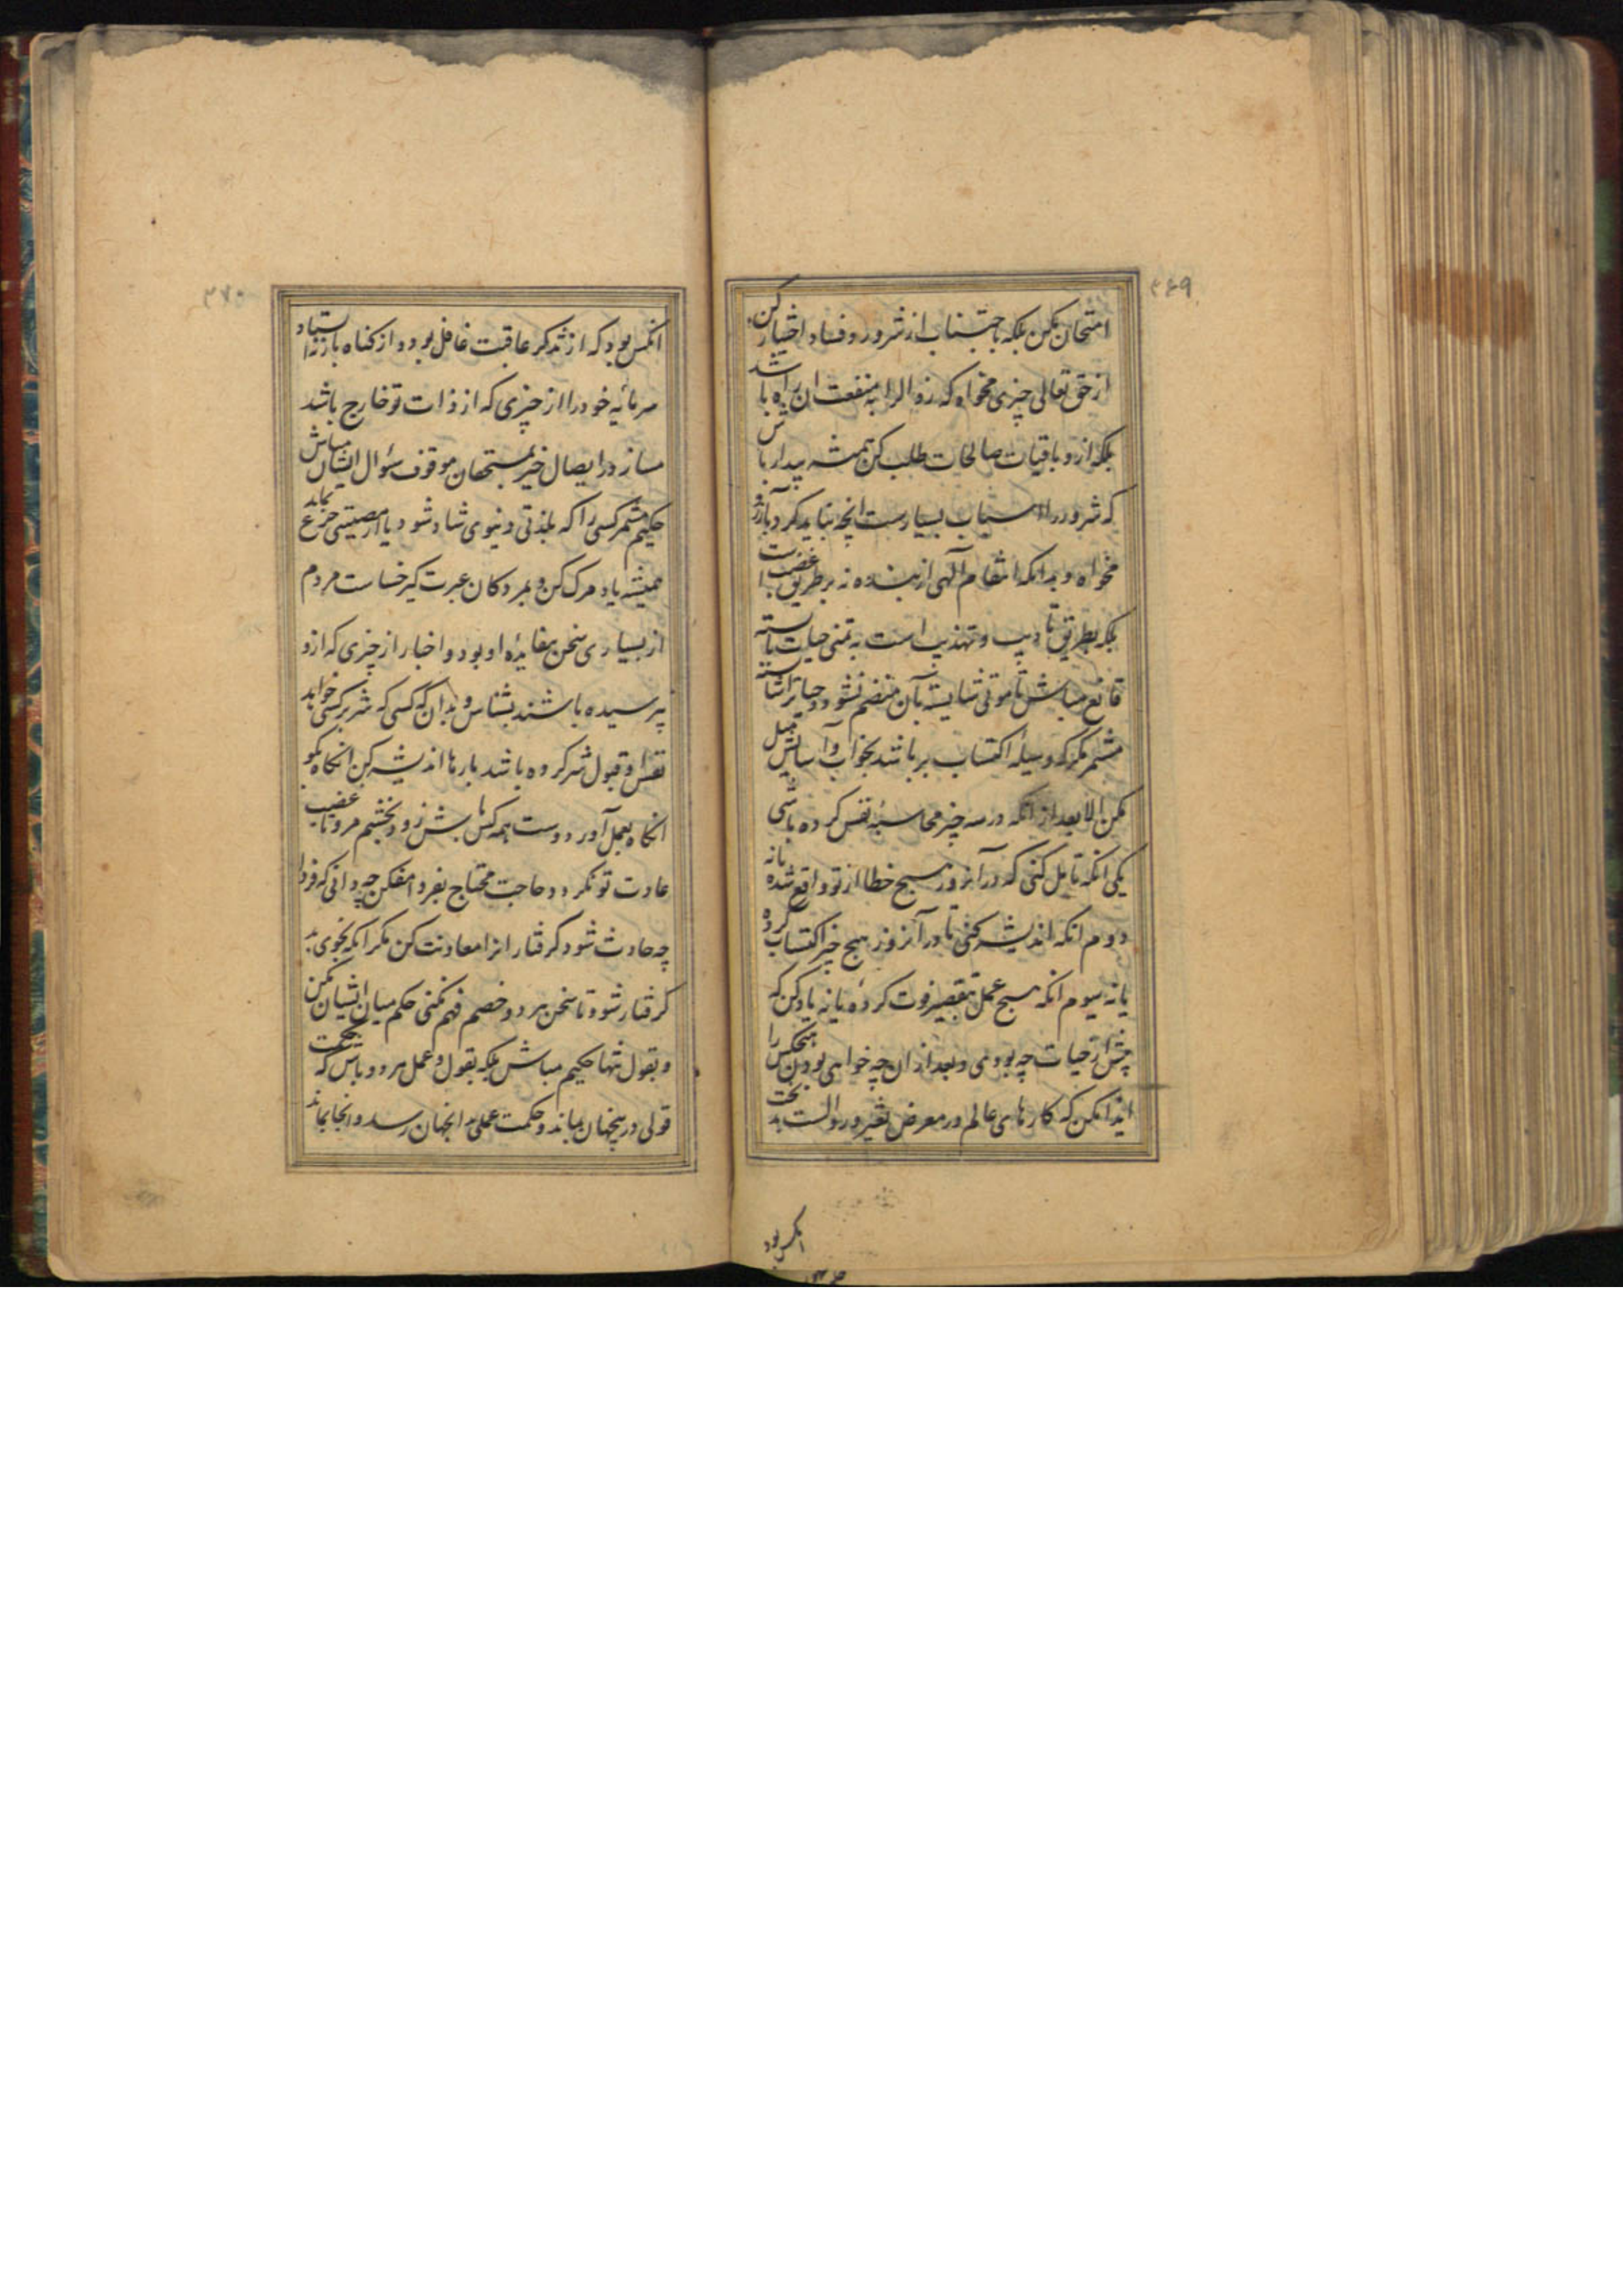 ۳۶۹
امتحان مکن بلکه باجتناب از شرور و فساد اختیار کن
از حق تعالی چیزی مخواه که زوال را به منفعت ان راه باشد
بلکه ازو باقیات صالحات طلب کن همیشه بیدار باش
که شرور را اسباب بسیارست انچه نباید کرد بآرزو
مخواه و بدانکه انتقام آلهی از بنده نه بر طریق غضبست
بلکه بطریق تأدیب و تهذیب است به تمنی حیات بایسته
قانع مباش تا موتی شایسته بآن منضم نشود و حیات را شایسته
مشمر مگر که وسیله اکتساب بر باشد بخواب و آسایش میل
مکن الا بعد از انکه در سه چیز محاسبه نفس کرده باشی
یکی انکه تامل کنی که در آنروز هیچ خطا از تو واقع شده یا نه
دوم انکه اندیشه کنی تا در آنروز هیچ خیر اکتساب کرده
یا نه سیوم انکه هیچ عمل بتقصیر فوت کرده یا نه یاد کن که
پیش از حیات چه بودی و بعد از ان چه خواهی بودن هیچکس را
ایذا مکن که کارهای عالم در معرض تغیر و زوالست بدبخت
انکس بود
۳۷۰
انکس بود که از تذکر عاقبت غافل بود و از گناه بازنایستد
سرمایه خود را از چیزی که از ذات تو خارج باشد
مساز در ایصال خیر بمستحقان موقوف سؤال ایشان مباش
حکیم مشمر کسی را که بلذتی دنیوی شاد شود یا از مصیبتی جزع نماید
همیشه یاد مرگ کن و بمردگان عبرت گیر خساست مردم
از بسیاری سخن بیفایده او بود و اخبار از چیزی که ازو
نپرسیده باشند بشناس و بدان که کسی که شر بر کسی خواهد
نفس او قبول شر کرده باشد بارها اندیشه کن انگاه بگو
انگاه بعمل آور دوست همه کس باش زود بخشم مرو تا غضب
عادت تو نگردد حاجت محتاج بفردا مفکن چه دانی که فردا
چه حادث شود گرفتار انرا معاونت کن مگر انکه بخوی بد
گرفتار شود تا سخن هر دو خصم فهم نکنی حکم میان ایشان مکن
و بقول تنها حکیم مباش بلکه بقول و عمل هر دو باش که حکمت
قولی درینجهان بماند و حکمت عملی بدانجهان رسد و انجا بماند